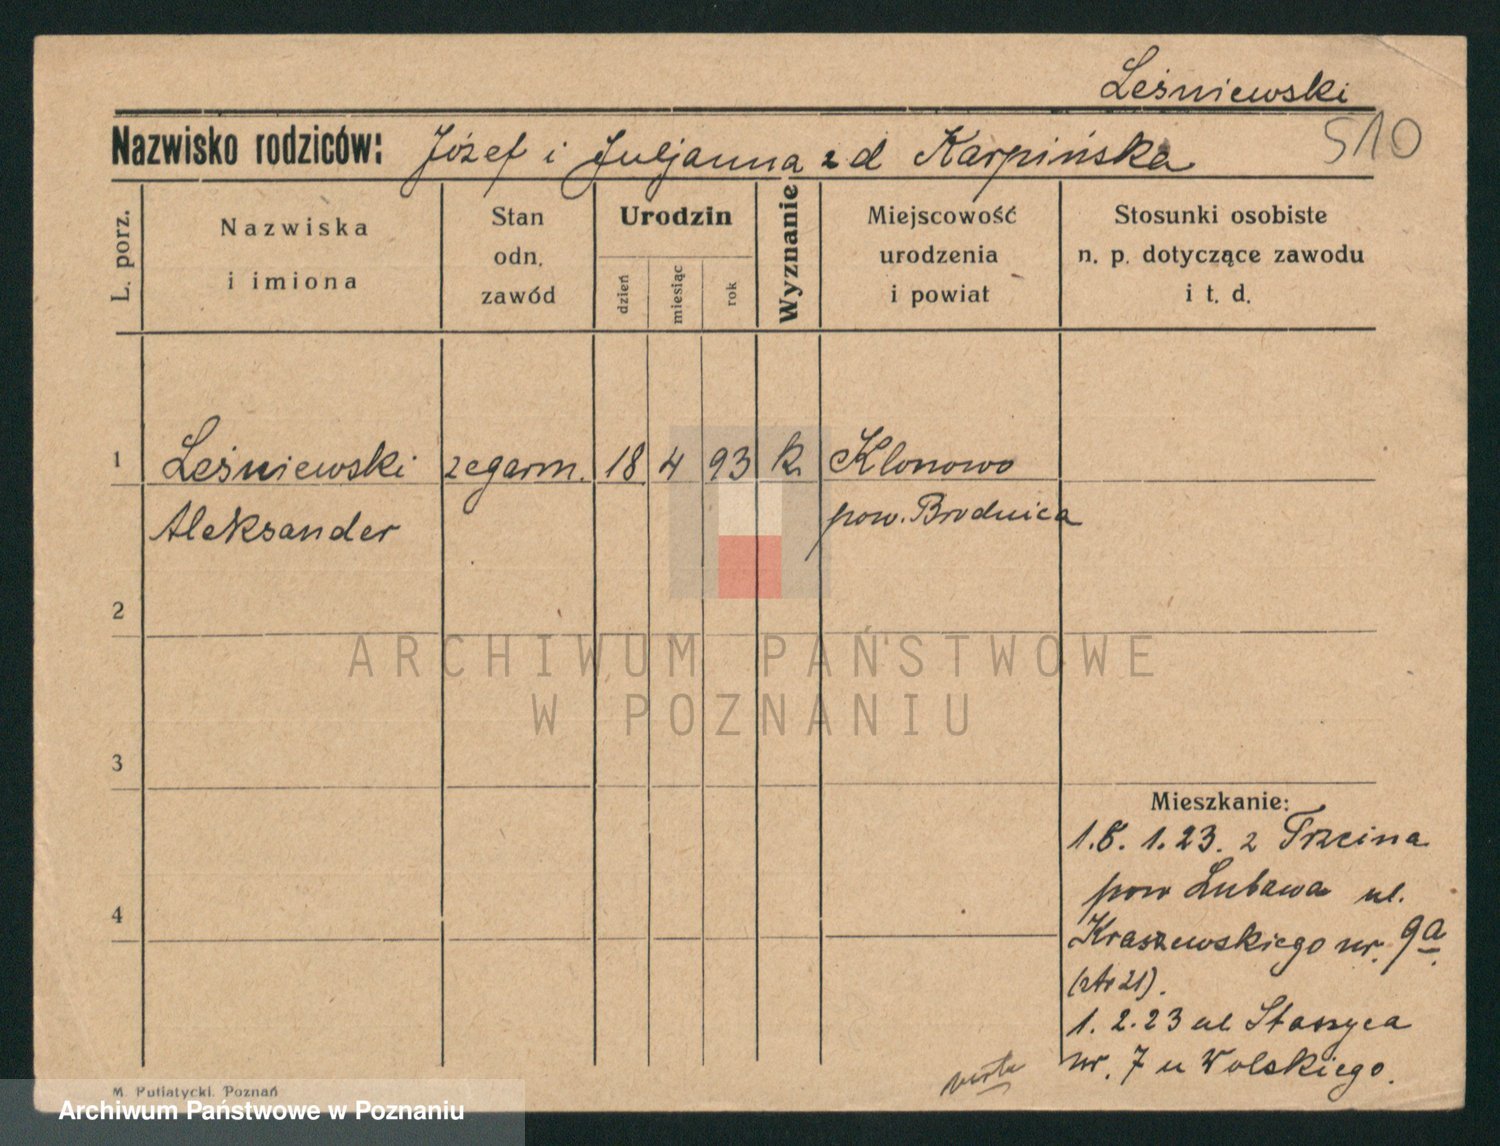 Leśniewski
510
Nazwisko rodziców: Józef i Juljanna z d Karpińska
L. porz.
Nazwiska
i imiona
Stan
odn.
zawód
Urodzin
dzień
miesiąc
rok
Wyznanie
Miejscowość
urodzenia
i powiat
Stosunki osobiste
n. p. dotyczące zawodu
i t. d.
1 Leśniewski zegarm. 18 4 93 k Klonowo
Aleksander pow. Brodnica
2
ARCHIWUM PAŃSTWOWE
W POZNANIU
3
Mieszkanie:
1. 1.23. z Trzcina
pow Lubawa ul.
4
Kraszewskiego nr. 9a
(str 21).
1. 2.23 ul Staszyca
nr. 7 u Wolskiego.
verte
M. Putiatycki, Poznań
Archiwum Państwowe w Poznaniu